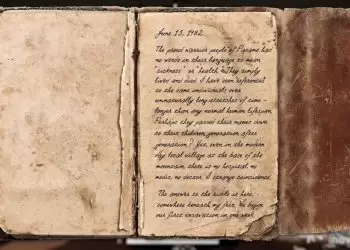 June 15, 1982
The proud warrior people of Paramo had
no words in their language to mean
"sickness" or "health." They simply
lived and died. I have seen references
to the same individuals over
unnaturally long stretches of time -
longer than any normal human lifespan.
Perhaps they passed their names down
to their children, generation after
generation? Yes, even in the modern
day local village at the base of the
mountain, there is no hospital, no
medic, no doctor. A strange coincidence.
The answer to the riddle is here,
somewhere beneath my feet. We begin
our first excavation in one week.